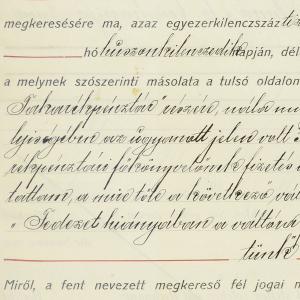 megkeresésére ma, azaz egyezerkilenczszáz tíz
hó huszonkilenczedik napján, dél
a melynek szószerinti másolata a tulsó oldalon
Takarékpénztár részére, nála m
helyiségében az ugyanott jelen volt
rékpénztári főkönyvelőnek fizetés
tattam, a mire tőle a következő vál
„Fedezet hiányában a váltóra
tünk"
Miről, a fent nevezett megkereső fél jogai